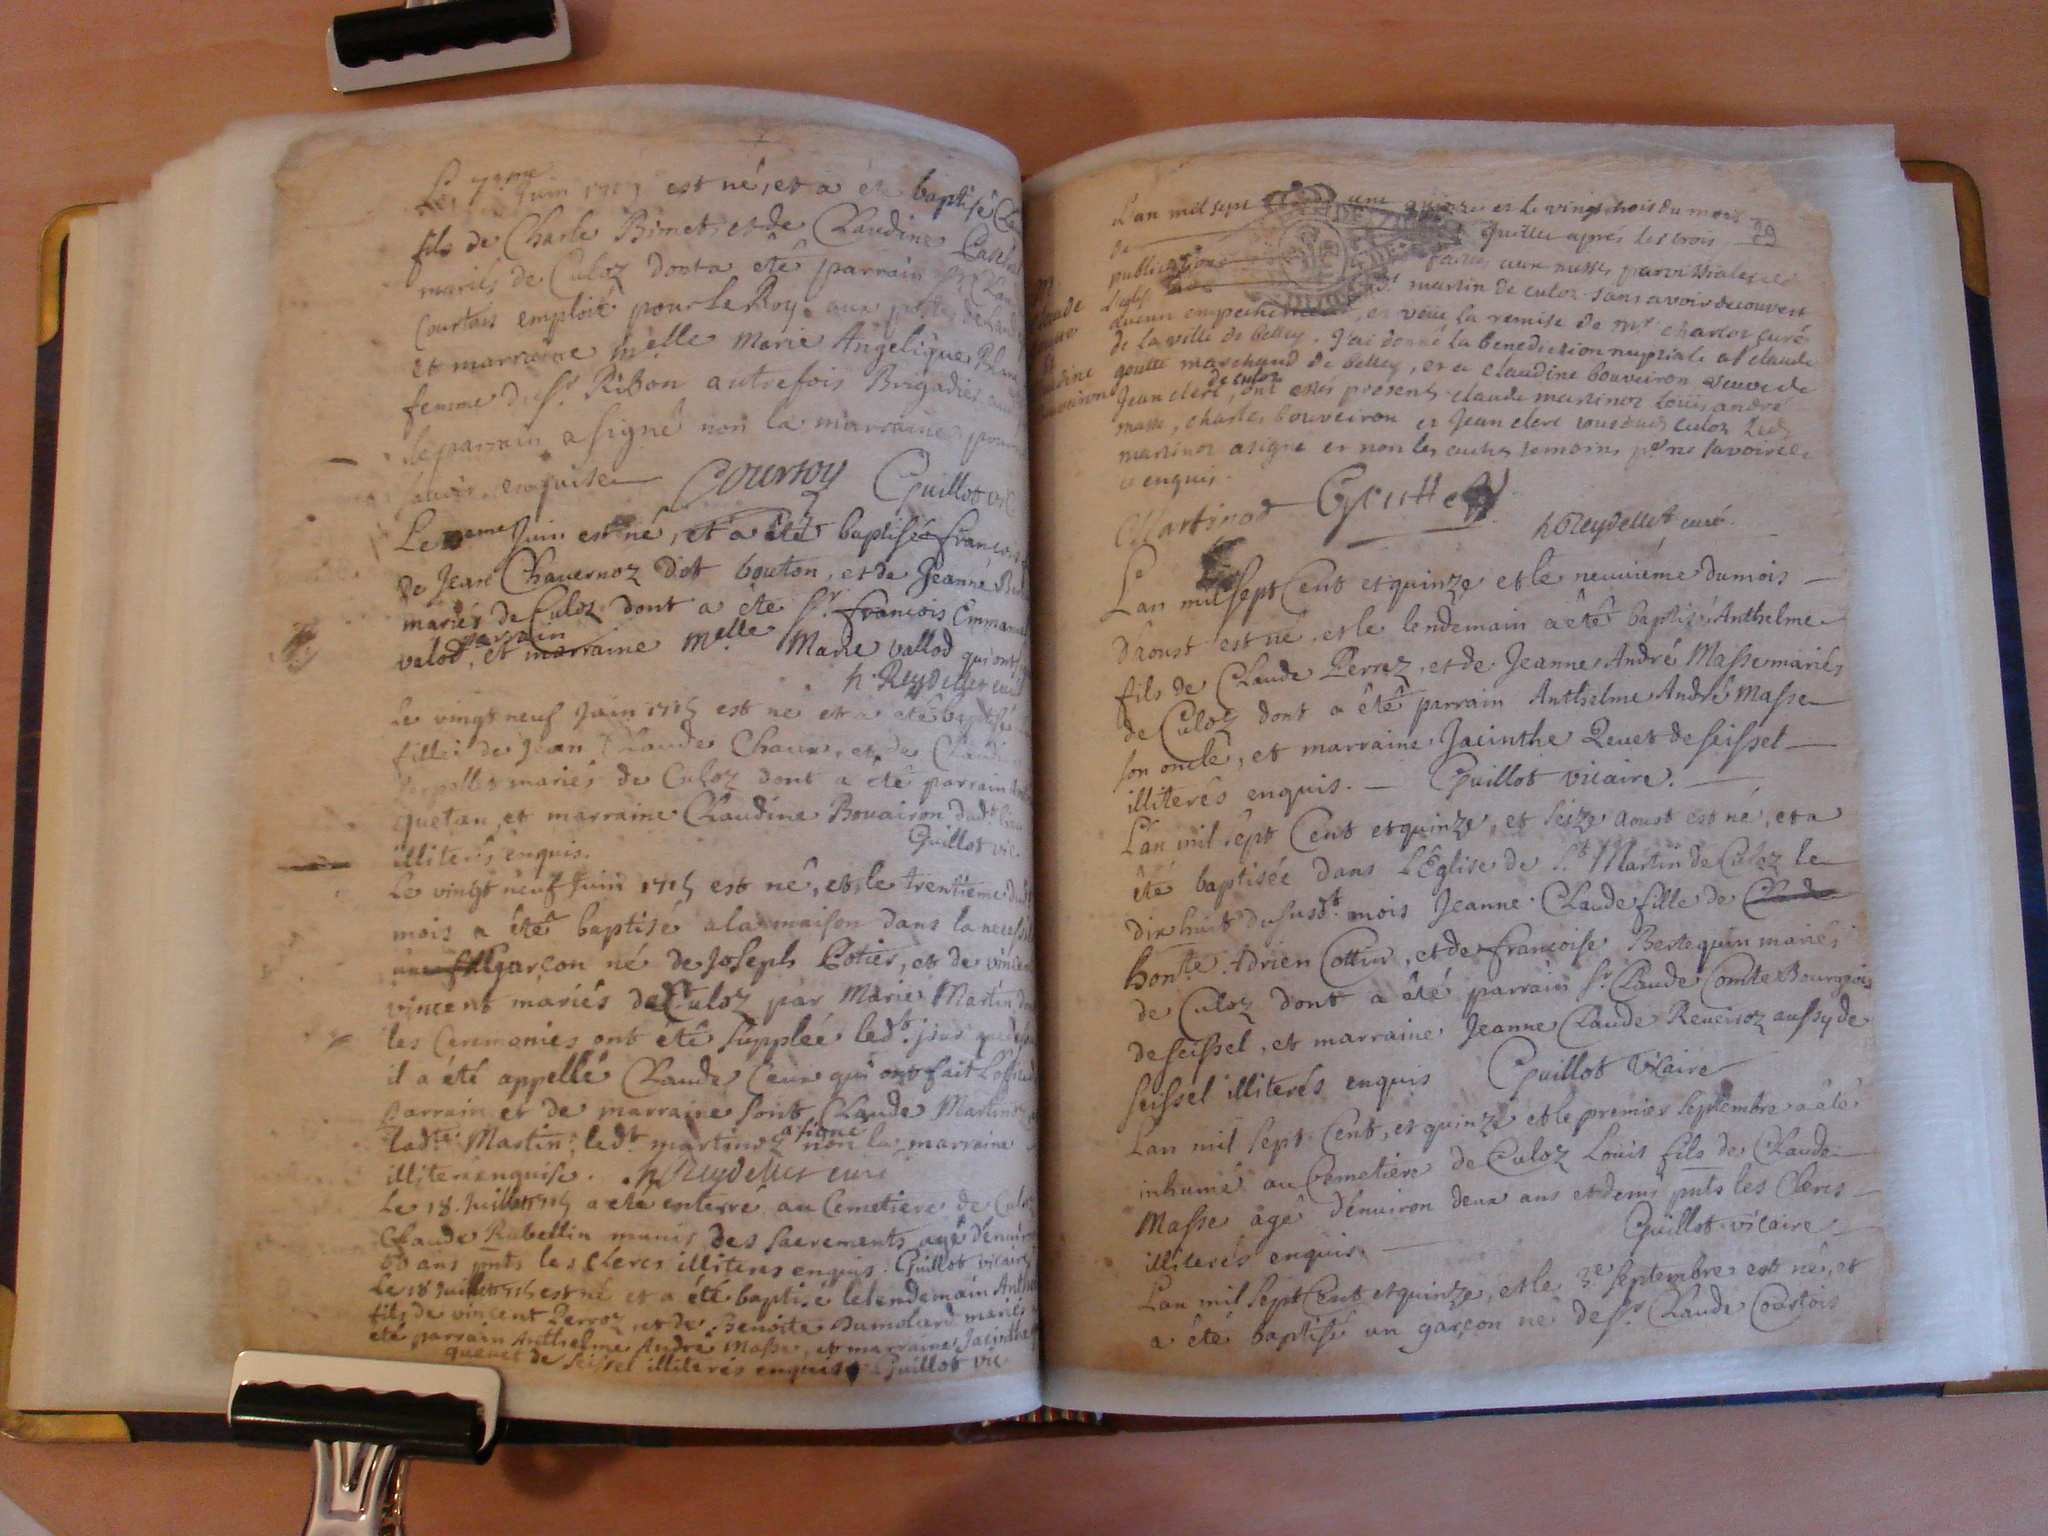 Le 7eme Juin 1715 est né, et a été baptisé
fils de Charle Bimet, et de Claudine
mariés de Culoz dont a été parrain Sr
Courtois emploié pour le Roy aux postes de
et marraine Melle Marie Angelique
femme du Sr. Ribon autrefois Brigadier
le parrain a signé non la marraine pour
savoir enquise Courtoy Guillot vic
Le eme Juin est né, et a été baptisée françois
de Jean Chavernoz dit bouton, et de Jeanne
mariés de Culoz dont a été Sr. françois Emmanuel
parrain
valod, et marraine Melle Marie vallod qui ont
h. Reydellet curé
Le vingt neuf Juin 1715 est né et a été baptisé
fille de Jean Claude Chaux, et de
mariés de Culoz dont a été parrain
quetan, et marraine Claudine Bovairon dudt lieu
illiterés enquis. Guillot vic
Le vingt neuf Juin 1715 est né, et le trentième dudt
mois a été baptisé a la maison dans la necessité
une fille garçon né de Joseph Cotier, et de
vincent mariés de Culoz par Marie Martin
les Ceremonies ont été supplée ledt. jour
il a été appellé Claude Ceux qui ont fait L'office
parrain et de marraine sont Claude Martinoz
a signé
ladte. Martin; ledt. martinoz non la marraine
illiter enquise. h Reydellet curé
Le 18. Juillet 1715 a été enterré au Cemetiere de Culoz
Claude Rubellin munis des sacrements, agé d'environ
60 ans pnts les Clercs illiterés enquis. Guillot vicaire
Le 18 Juillet 1715 est né et a été baptisé le lendemain Anthelme
fils de vincent Perroz, et de Benoite Dumolard mariés
été parrain Anthelme André Masse, et marraine Jacinthe
quevet de Seissel illiterés enquis Guillot vic
L'an mil sept cent quinze et le vingt trois du mois
29
de Juillet après les trois
publications faites aux messes parroissiales
L'eglise de St martin de culoz sans avoir decouvert
aucun empechement, et veüe la remise de Mr charlot curé
de la ville de belley, J'ai donné la benediction nuptiale a claude
goutte marchand de belley, et a claudine bouveiron veuve de
de culoz
Jean clerc, ont estés presents claude martinoz Louis andré
masse, charles bouveiron et Jean clerc tous dudt culoz Ledt
martinoz a signé et non les autres temoins pr ne savoir
enquis.
Martinod Goutte
h Reydellet curé.
L'an mil sept Cent et quinze et le neuvième du mois
d'aoust est né, et le lendemain a été baptisé Anthelme
fils de Claude Perroz, et de Jeanne André Masse mariés
de Culoz dont a été parrain Anthelme André Masse
son oncle, et marraine Jacinthe Quevet de seissel
illiterés enquis. Guillot vicaire.
L'an mil sept Cent et quinze, et seize aoust est né, et a
été baptisée dans L'Eglise de St. Martin de Culoz le
dix huit du susdt. mois Jeanne Claude fille de Claude
honte. Adrien Cottin, et de françoise Bertequin mariés
de Culoz dont a été parrain Sr. Claude Comte Bourgeois
de seissel, et marraine Jeanne Claude Reveiroz aussy de
seissel illiterés enquis Guillot Vicaire
L'an mil sept Cent, et quinze et le premier septembre a été
inhumé au Cemetière de Culoz Louis fils de Claude
Masse âgé d'environ deux ans et demi pnts les Clercs
illiterés enquis. Guillot vicaire
L'an mil sept Cent et quinze, et le 3e septembre est né, et
a été baptisé un garçon né de Sr. Claude Courtois